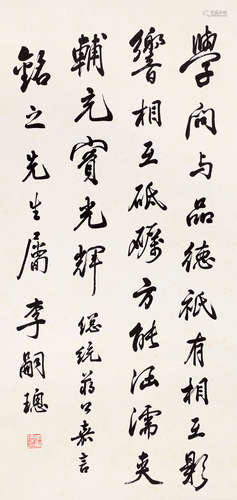 學問与品德祇有相互影
響相互砥礪方能涵濡夾
輔充實光輝 總統蔣公嘉言
銘之先生屬 李嗣璁